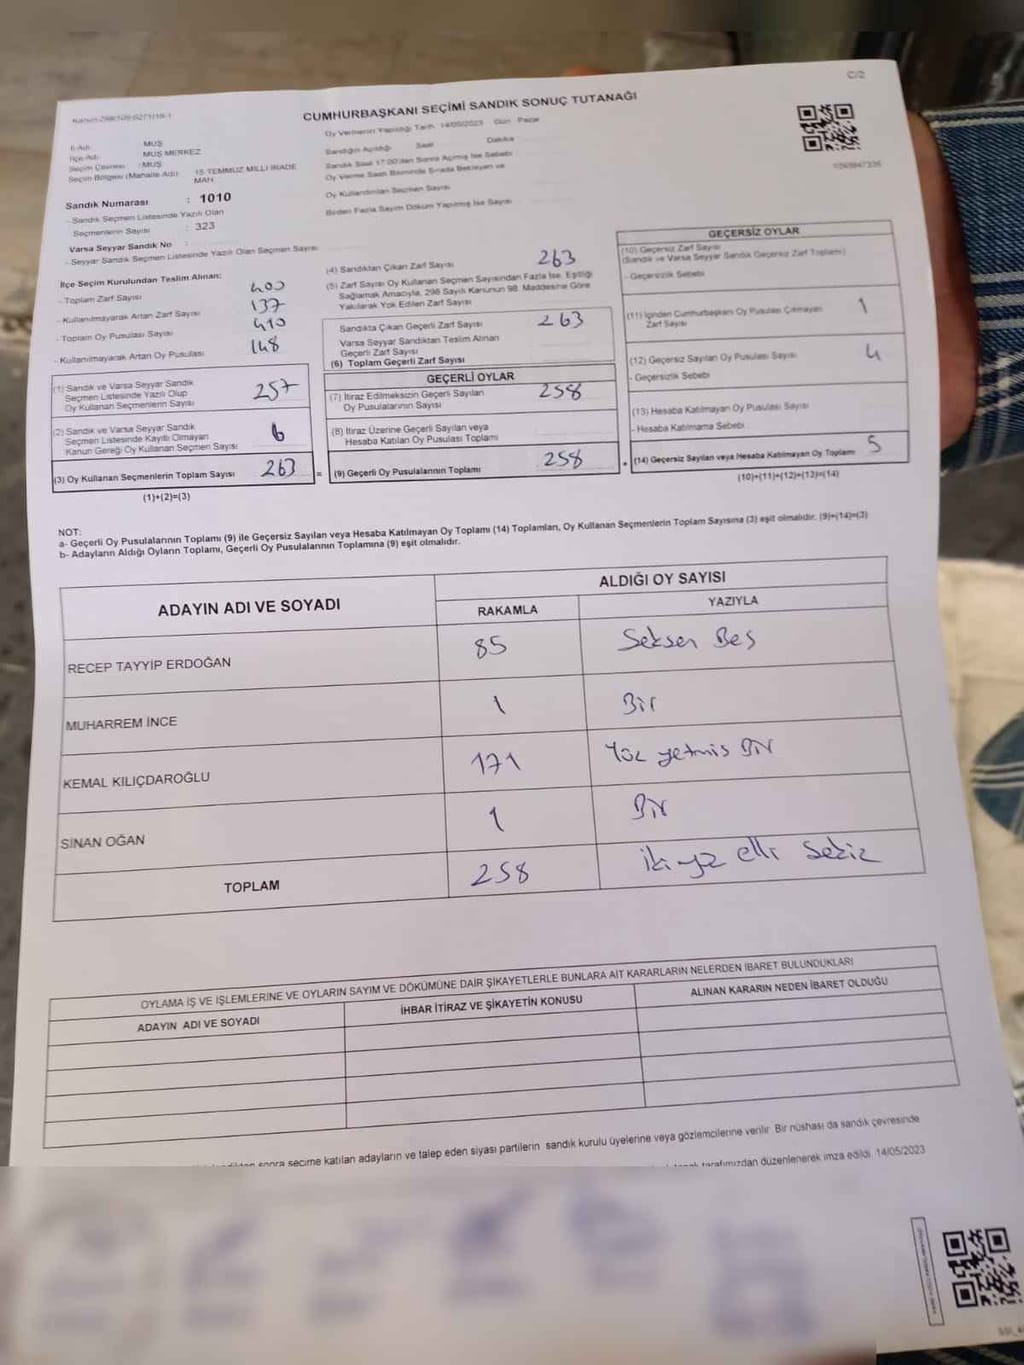 C/2
CUMHURBAŞKANI SEÇİMİ SANDIK SONUÇ TUTANAĞI
Oy Vermenin Yapıldığı Tarih 14/05/2023 Gün Pazar
İl Adı: MUŞ
İlçe Adı: MUŞ MERKEZ
Seçim Çevresi : MUŞ
Seçim Bölgesi (Mahalle Adı) 15 TEMMUZ MİLLİ İRADE MAH.
Sandığın Açıldığı Saat Dakika
Sandık Saat 17:00'den Sonra Açılmış İse Sebebi
Oy Verme Saati Bitiminde Sırada Bekleyen ve
Oy Kullandırılan Seçmen Sayısı
Birden Fazla Sayım Döküm Yapılmış İse Sayısı
Sandık Numarası : 1010
- Sandık Seçmen Listesinde Yazılı Olan
Seçmenlerin Sayısı : 323
Varsa Seyyar Sandık No :
- Seyyar Sandık Seçmen Listesinde Yazılı Olan Seçmen Sayısı
İlçe Seçim Kurulundan Teslim Alınan:
- Toplam Zarf Sayısı 400
- Kullanılmayarak Artan Zarf Sayısı 137
- Toplam Oy Pusulası Sayısı 410
- Kullanılmayarak Artan Oy Pusulası 148
(1) Sandık ve Varsa Seyyar Sandık
Seçmen Listesinde Yazılı Olup
Oy Kullanan Seçmenlerin Sayısı 257
(2) Sandık ve Varsa Seyyar Sandık
Seçmen Listesinde Kayıtlı Olmayan
Kanun Gereği Oy Kullanan Seçmen Sayısı 6
(3) Oy Kullanan Seçmenlerin Toplam Sayısı 263 =
(1)+(2)=(3)
(4) Sandıktan Çıkan Zarf Sayısı 263
(5) Zarf Sayısı Oy Kullanan Seçmen Sayısından Fazla İse, Eşitliği
Sağlamak Amacıyla, 298 Sayılı Kanunun 98. Maddesine Göre
Yakılarak Yok Edilen Zarf Sayısı
Sandıkta Çıkan Geçerli Zarf Sayısı 263
Varsa Seyyar Sandıktan Teslim Alınan
Geçerli Zarf Sayısı
(6) Toplam Geçerli Zarf Sayısı
GEÇERLİ OYLAR
(7) İtiraz Edilmeksizin Geçerli Sayılan
Oy Pusulalarının Sayısı 258
(8) İtiraz Üzerine Geçerli Sayılan veya
Hesaba Katılan Oy Pusulası Toplamı
(9) Geçerli Oy Pusulalarının Toplamı 258 +
GEÇERSİZ OYLAR
(10) Geçersiz Zarf Sayısı
(Sandık ve Varsa Seyyar Sandık Geçersiz Zarf Toplamı)
- Geçersizlik Sebebi
(11) İçinden Cumhurbaşkanı Oy Pusulası Çıkmayan
Zarf Sayısı 1
(12) Geçersiz Sayılan Oy Pusulası Sayısı 4
- Geçersizlik Sebebi
(13) Hesaba Katılmayan Oy Pusulası Sayısı
- Hesaba Katılmama Sebebi
(14) Geçersiz Sayılan veya Hesaba Katılmayan Oy Toplamı 5
(10)+(11)+(12)+(13)=(14)
NOT:
a- Geçerli Oy Pusulalarının Toplamı (9) ile Geçersiz Sayılan veya Hesaba Katılmayan Oy Toplamı (14) Toplamları, Oy Kullanan Seçmenlerin Toplam Sayısına (3) eşit olmalıdır. (9)+(14)=(3)
b- Adayların Aldığı Oyların Toplamı, Geçerli Oy Pusulalarının Toplamına (9) eşit olmalıdır.
ADAYIN ADI VE SOYADI ALDIĞI OY SAYISI
RAKAMLA YAZIYLA
RECEP TAYYİP ERDOĞAN 85 Seksen Beş
MUHARREM İNCE 1 Bir
KEMAL KILIÇDAROĞLU 171 Yüz yetmiş Bir
SİNAN OĞAN 1 Bir
TOPLAM 258 iki yüz elli Sekiz
OYLAMA İŞ VE İŞLEMLERİNE VE OYLARIN SAYIM VE DÖKÜMÜNE DAİR ŞİKAYETLERLE BUNLARA AİT KARARLARIN NELERDEN İBARET BULUNDUKLARI
ADAYIN ADI VE SOYADI İHBAR İTİRAZ VE ŞİKAYETİN KONUSU ALINAN KARARIN NEDEN İBARET OLDUĞU
sonra seçime katılan adayların ve talep eden siyasi partilerin sandık kurulu üyelerine veya gözlemcilerine verilir. Bir nüshası da sandık çevresinde
tarafımızdan düzenlenerek imza edildi. 14/05/2023